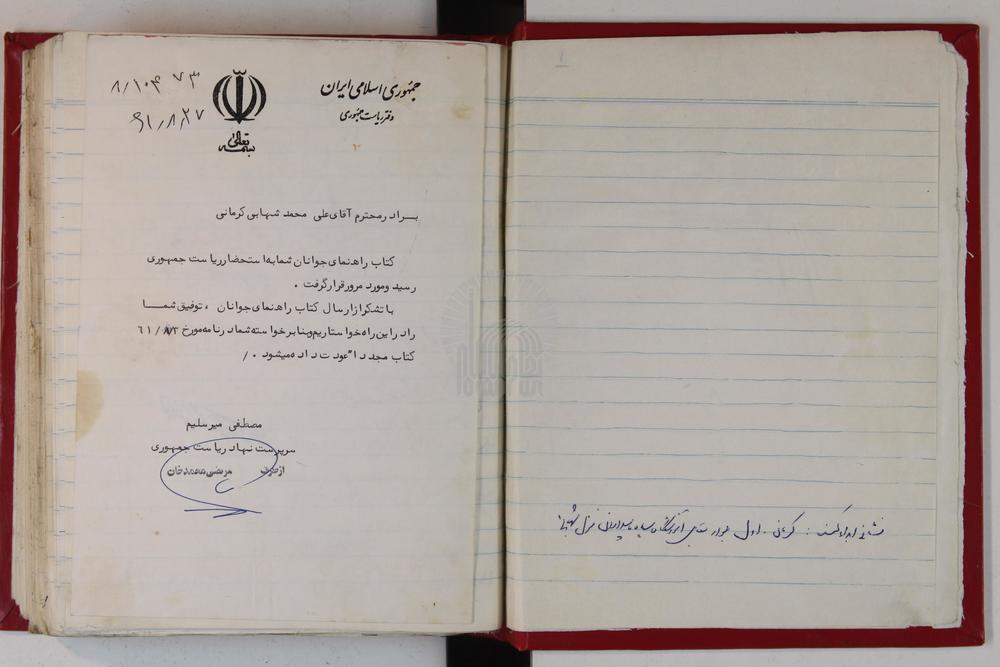 جمهوری اسلامی ایران
دفتر ریاست جمهوری
۸/۱۰۴۷۳
۶۱/۸/۲۷
بسمه تعالی
بسرادر محترم آقای علی محمد شهابی کرمانی
کتاب راهنمای جوانان شما به استحضار ریاست جمهوری
رسید و مورد مرور قرار گرفت .
با تشکر از ارسال کتاب راهنمای جوانان ، توفیق شمــا
را در این راه خواستاریم و بنابر خواسته شما در نامه مورخ ۶۱/۸/۳
کتاب مجدداً عودت داده میشود ./
مصطفی میرسلیم
سرپرست نهاد ریاست جمهوری
از طرف مرتضی محمدخان
نشانی اهداء کننده : کرمان - اول بلوار